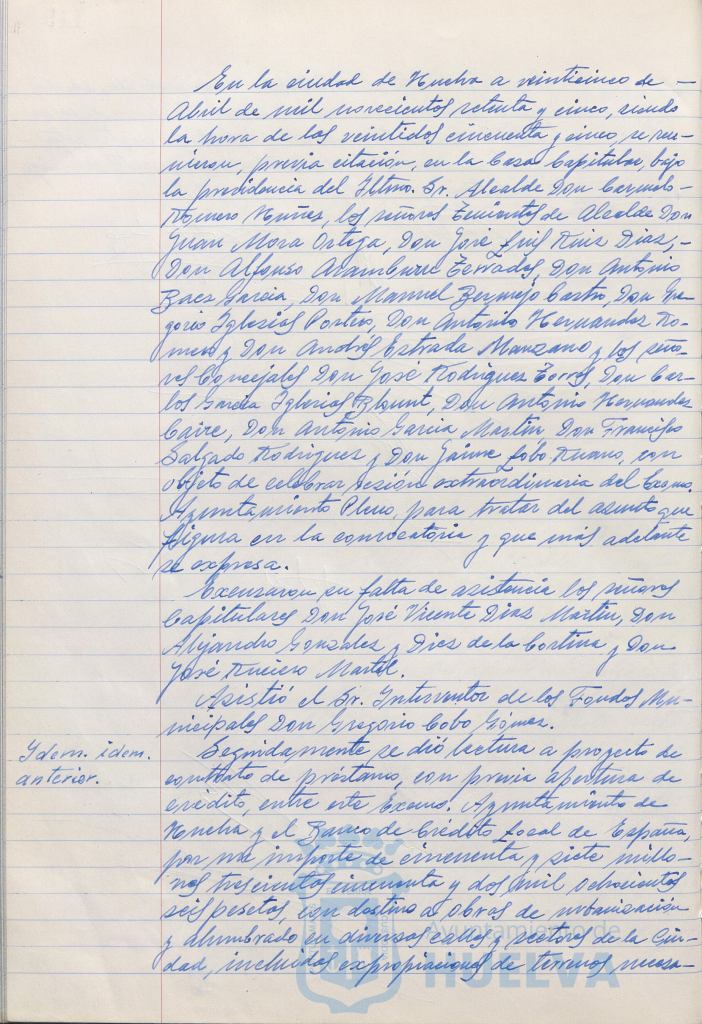 En la ciudad de Huelva a veinticinco de —
Abril de mil novecientos setenta y cinco, siendo
la hora de las veintidos cincuenta y cinco, se reu-
nieron, previa citación, en la Casa Capitular, bajo
la presidencia del Iltmo. Sr. Alcalde Don Carmelo-
Romero Nuñez, los señores Tenientes de Alcalde Don
Juan Mora Ortega, Don José Luis Ruiz Diaz,-
Don Alfonso Aramburu Terrades, Don Antonio
Baez Garcia, Don Manuel Bermejo Castro, Don Gre-
gorio Iglesias Porteo, Don Antonio Hernandez Ro-
mero y Don Andrés Estrada Manzano y los seño-
res Concejales Don José Rodriguez Torres, Don Car-
los Garcia Iglesias Blount, Don Antonio Hernandez
Caire, Don Antonio Garcia Martin Don Francisco
Salgado Rodriguez y Don Jaime Lobo Ruano, con
objeto de celebrar sesión extraordinaria del Excmo.
Ayuntamiento Pleno, para tratar del asunto que
figura en la convocatoria y que más adelante
se expresa.
Excusaron su falta de asistencia los señores
Capitulares Don José Vicente Diaz Martin, Don
Alejandro Gonzalez y Diez de la Cortina y Don
José Ruciero Martel.
Asistió el Sr. Interventor de los Fondos Mu-
nicipales Don Gregorio Cobo Gómez.
Idem. idem.
anterior.
Seguidamente se dió lectura a proyecto de
contrato de préstamo, con previa apertura de
crédito, entre este Excmo. Ayuntamiento de
Huelva y el Banco de Crédito Local de España,
por un importe de cincuenta y siete millo-
nes trescientos cincuenta y dos mil ochocientos
seis pesetas, con destino a obras de urbanización
y alumbrado en diversas calles y sectores de la Ciu-
dad, incluidos expropiaciones de terrenos necesa-
Ayuntamiento de
HUELVA